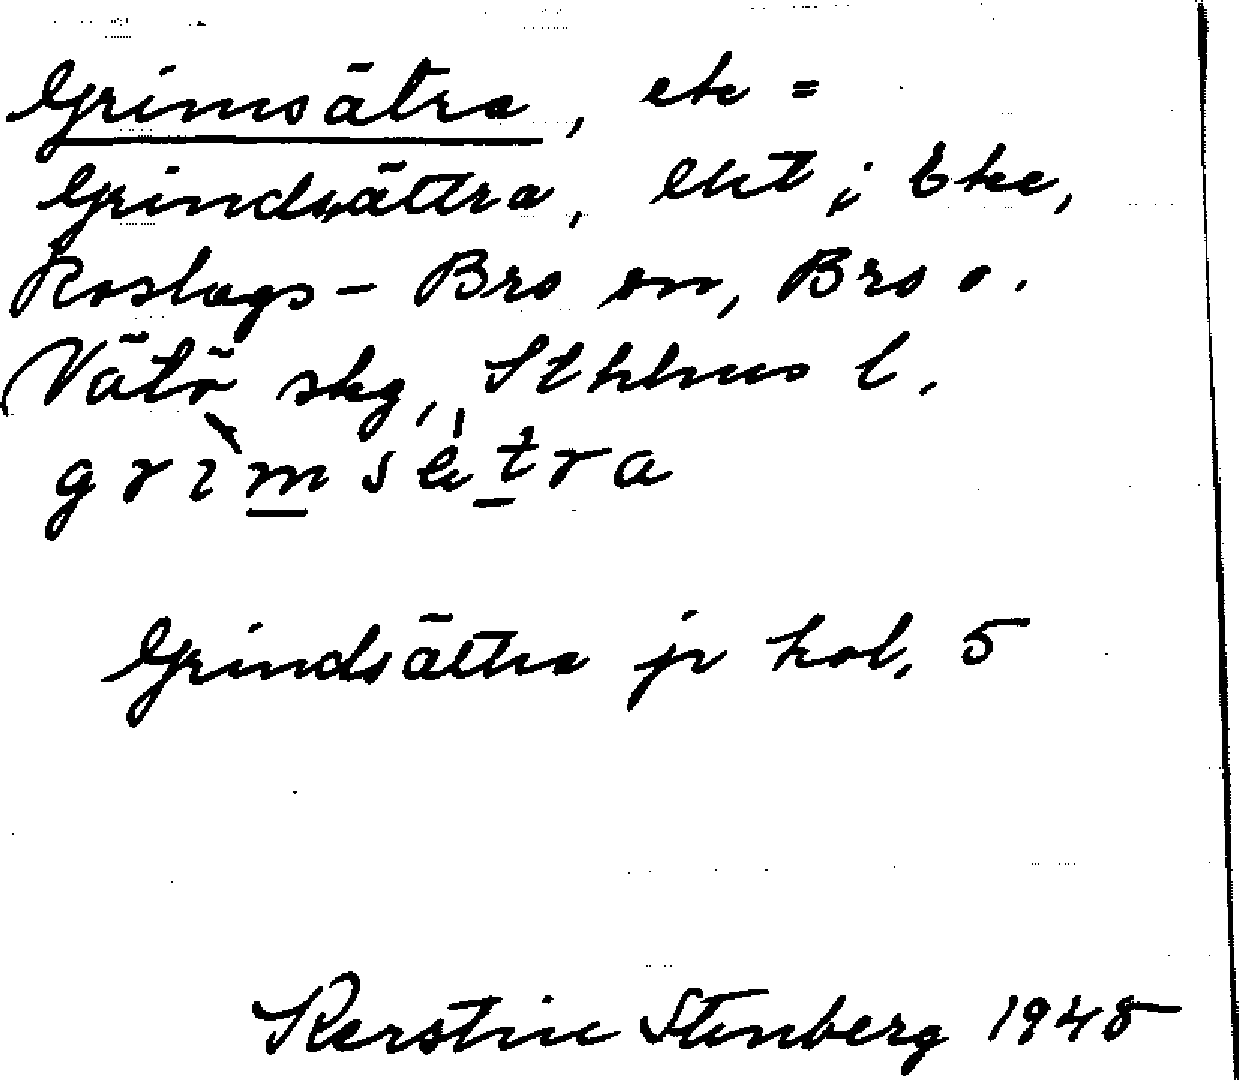 Grimsätra, ek =
Grindsättra, ekt; Eke,
Roslags-Bro sn, Bro o.
Vätö skg, Sthlms l.
grìmsétra
Grindsättra jr kol. 5
Kerstin Stenberg 1945